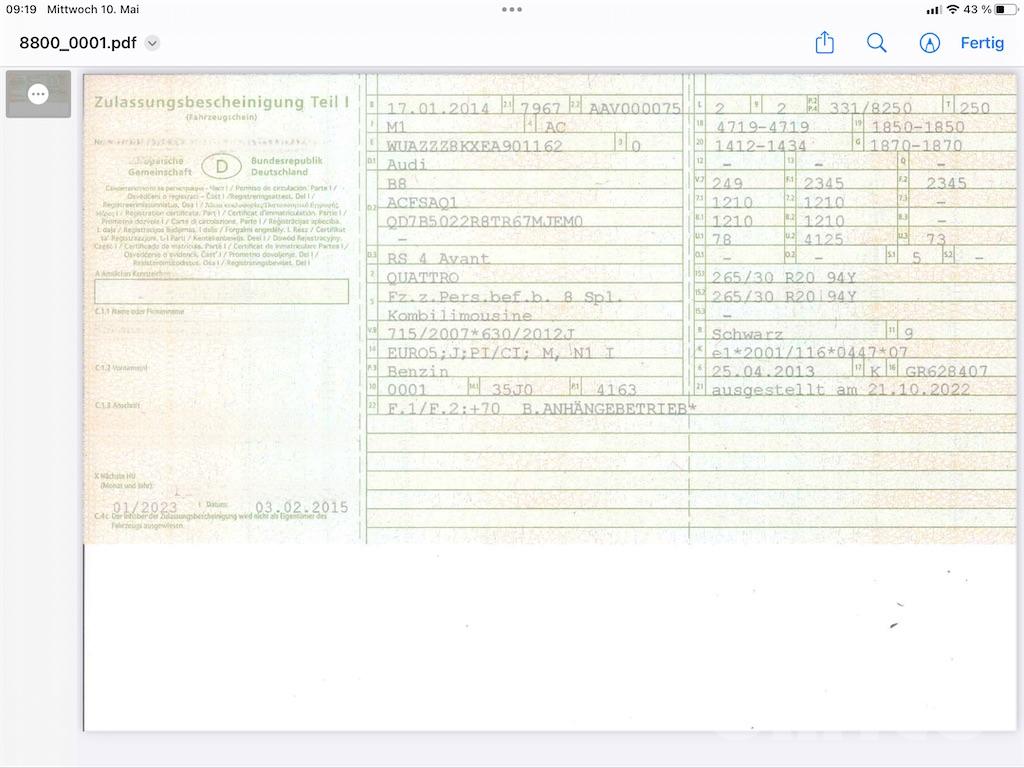 09:19 Mittwoch 10. Mai
43 %
8800_0001.pdf
Fertig
Zulassungsbescheinigung Teil I
(Fahrzeugschein)
Nr.
Europäische Gemeinschaft
D
Bundesrepublik Deutschland
C.1.1 Name oder Firmenname
C.1.2 Vorname(n)
C.1.3 Anschrift
X Nächste HU
(Monat und Jahr):
01/2023
I Datum:
03.02.2015
C.4c Der Inhaber der Zulassungsbescheinigung wird nicht als Eigentümer des
Fahrzeugs ausgewiesen.
B 17.01.2014 2.1 7967 2.2 AAV000075
J M1 4 AC
E WUAZZZ8KXEA901162 3 0
D.1 Audi
B8
D.2 ACFSAQ1
QD7B5022R8TR67MJEM0
–
D.3 RS 4 Avant
2 QUATTRO
5 Fz.z.Pers.bef.b. 8 Spl.
Kombilimousine
V.9 715/2007*630/2012J
14 EURO5;J;PI/CI; M, N1 I
P.3 Benzin
10 0001 14.1 35J0 P.1 4163
22 F.1/F.2:+70 B.ANHÄNGEBETRIEB*
L 2 9 2 P.2 P.4 331/8250 T 250
18 4719-4719 19 1850-1850
20 1412-1434 G 1870-1870
12 – 13 – Q –
V.7 249 F.1 2345 F.2 2345
7.1 1210 7.2 1210 7.3 –
8.1 1210 8.2 1210 8.3 –
U.1 78 U.2 4125 U.3 73
O.1 – O.2 – S.1 5 S.2 –
15.1 265/30 R20 94Y
15.2 265/30 R20 94Y
15.3 –
R Schwarz 11 9
K e1*2001/116*0447*07
6 25.04.2013 17 K 16 GR628407
21 ausgestellt am 21.10.2022